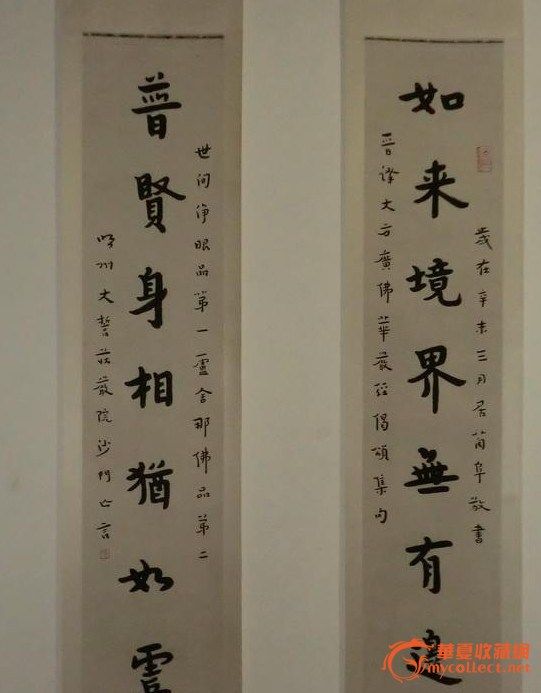 歲在辛未三月居阜敬書
如来境界無有邊
晉譯大方廣佛華嚴經偈頌集句
世间淨眼品第一盧舍那佛品第二
普賢身相猶如虛
明州大誓莊嚴院沙門亡言
華夏收藏網
mycollect.net